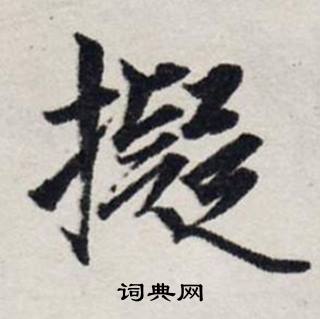 擬
词典网